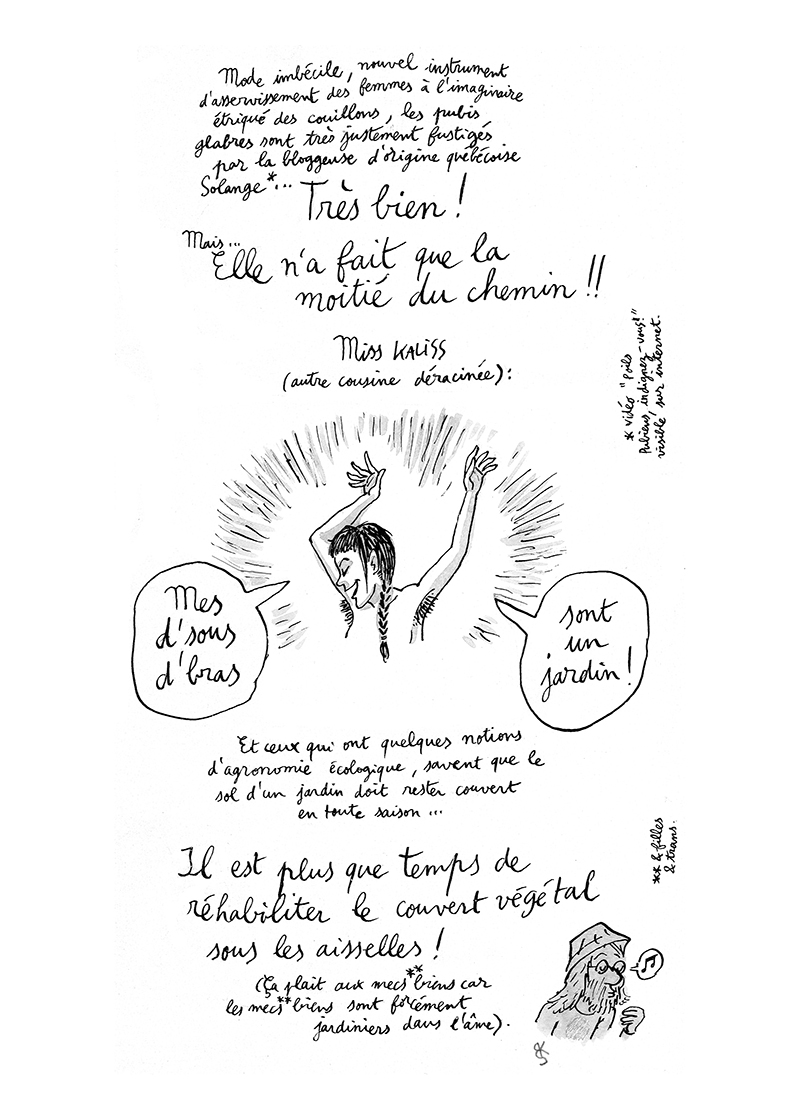 Mode imbécile, nouvel instrument
d'asservissement des femmes à l'imaginaire
étriqué des couillons, les pubis
glabres sont très justement fustigés
par la bloggeuse d'origine québécoise
Solange*...
Très bien !
Mais...
Elle n'a fait que la
moitié du chemin !!
* vidéo "poils
pubiens, indignez-vous!"
visible sur internet.
Miss KALISS
(autre cousine déracinée) :
Mes
d'sous
d'bras
sont
un
jardin !
Et ceux qui ont quelques notions
d'agronomie écologique, savent que le
sol d'un jardin doit rester couvert
en toute saison ...
Il est plus que temps de
réhabiliter le couvert végétal
sous les aisselles !
** & filles
& trans.
(Ça plait aux mecs** biens car
les mecs** biens sont forcément
jardiniers dans l'âme).